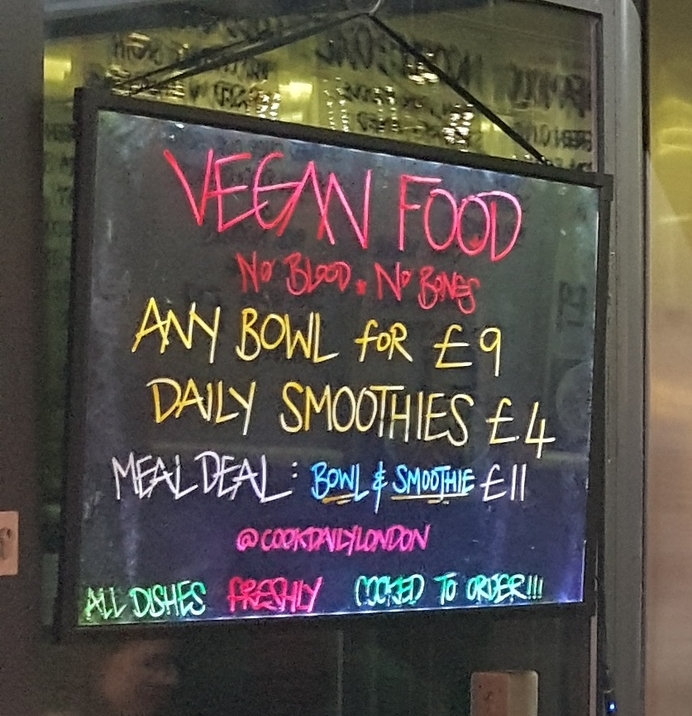 VEGAN FOOD
NO BLOOD. NO BONES
ANY BOWL FOR £9
DAILY SMOOTHIES £4
MEAL DEAL: BOWL & SMOOTHIE £11
@COOKDAILYLONDON
ALL DISHES FRESHLY COOKED TO ORDER!!!